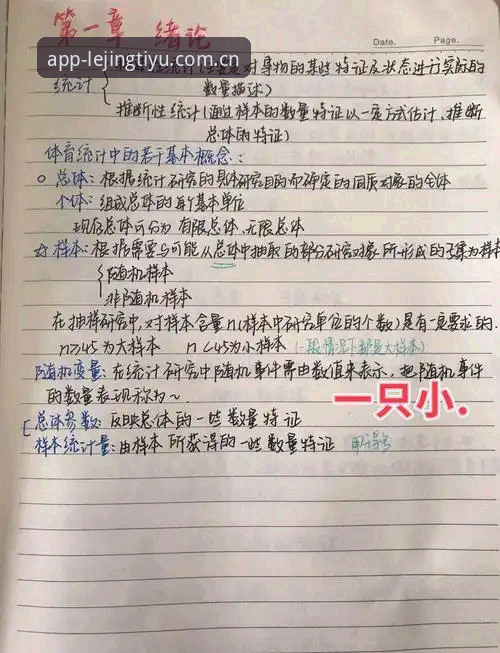 第一章 绪论
Date. Page.
app-lejingtiyu.com.cn
对事物的某些特征及状态进行实际的
统计
数量描述)
推断性统计(通过样本的数量特征以一定方式估计、推断
总体的特征)
体育统计中的若干基本概念:
总体:根据统计研究的具体研究目的而确定的同质对象的全体
个体:组成总体的每个基本单位
现存总体可分为 有限总体、无限总体
☆样本:根据需要与可能从总体中抽取的部分研究对象所形成的子集为样本
随机样本
非随机样本
在抽样研究中,对样本含量n(样本中研究单位的个数)是有一定要求的.
n≥45为大样本 n<45为小样本 (一般情况下都是大样本)
随机变量:在统计研究中随机事件需由数值来表示,把随机事件
的数量表现称为~.
一只小.
总体参数:反映总体的一些数量特征
样本统计量:由样本所获得的一些数量特征